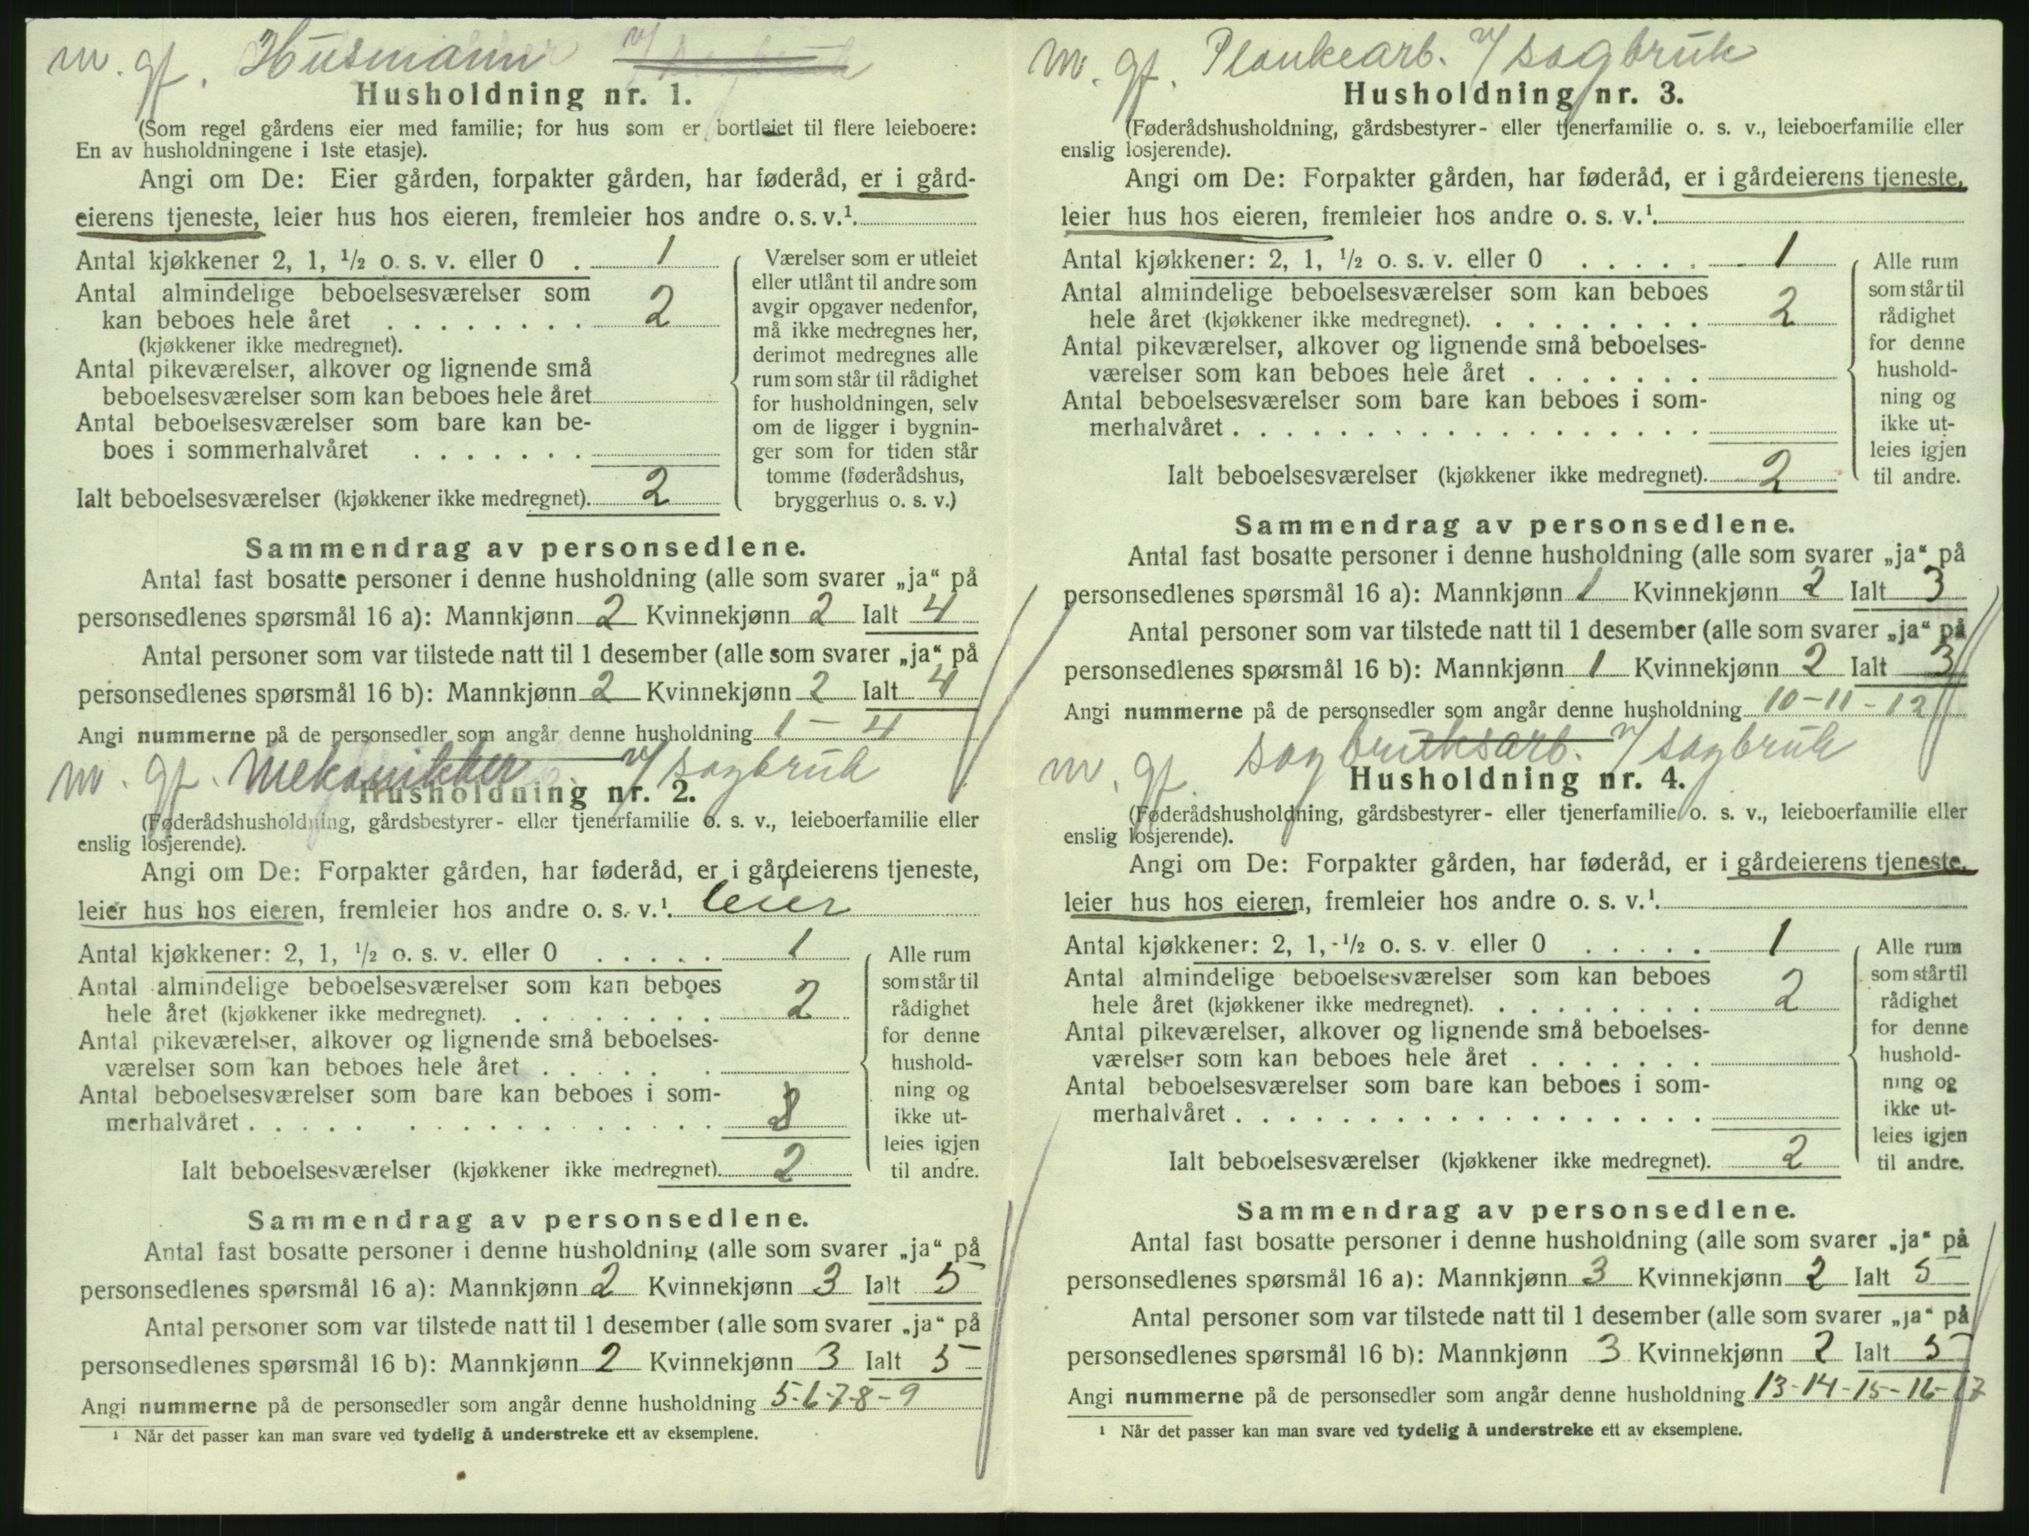 m. gf. Husmann v/ sagbruk
Husholdning nr. 1.
(Som regel gårdens eier med familie; for hus som er bortleiet til flere leieboere:
En av husholdningene i 1ste etasje).
Angi om De: Eier gården, forpakter gården, har føderåd, er i gård-
eierens tjeneste, leier hus hos eieren, fremleier hos andre o. s. v.¹.
Antal kjøkkener 2, 1, ½ o. s. v. eller 0 . 1
Antal almindelige beboelsesværelser som
kan beboes hele året . . . . . . . . 2
(kjøkkener ikke medregnet).
Antal pikeværelser, alkover og lignende små
beboelsesværelser som kan beboes hele året
Antal beboelsesværelser som bare kan be-
boes i sommerhalvåret . . . . . . .
Ialt beboelsesværelser (kjøkkener ikke medregnet). 2
Værelser som er utleiet
eller utlånt til andre som
avgir opgaver nedenfor,
må ikke medregnes her,
derimot medregnes alle
rum som står til rådighet
for husholdningen, selv
om de ligger i bygnin-
ger som for tiden står
tomme (føderådshus,
bryggerhus o. s. v.)
Sammendrag av personsedlene.
Antal fast bosatte personer i denne husholdning (alle som svarer „ja“ på
personsedlenes spørsmål 16 a): Mannkjønn 2 Kvinnekjønn 2 Ialt 4
Antal personer som var tilstede natt til 1 desember (alle som svarer „ja“ på
personsedlenes spørsmål 16 b): Mannkjønn 2 Kvinnekjønn 2 Ialt 4
Angi nummerne på de personsedler som angår denne husholdning 1 – 4
m. gf. Mekanikker v/ sagbruk
Husholdning nr. 2.
(Føderådshusholdning, gårdsbestyrer- eller tjenerfamilie o. s. v., leieboerfamilie eller
enslig losjerende).
Angi om De: Forpakter gården, har føderåd, er i gårdeierens tjeneste,
leier hus hos eieren, fremleier hos andre o. s. v.¹. leier
Antal kjøkkener: 2, 1, ½ o. s. v. eller 0 . . . . . 1
Antal almindelige beboelsesværelser som kan beboes
hele året (kjøkkener ikke medregnet). . . . . . . . 2
Antal pikeværelser, alkover og lignende små beboelses-
værelser som kan beboes hele året . . . . . .
Antal beboelsesværelser som bare kan beboes i som-
merhalvåret . . . . . . . . . . . . . . .
Ialt beboelsesværelser (kjøkkener ikke medregnet). 2
Alle rum
som står til
rådighet
for denne
hushold-
ning og
ikke ut-
leies igjen
til andre.
Sammendrag av personsedlene.
Antal fast bosatte personer i denne husholdning (alle som svarer „ja“ på
personsedlenes spørsmål 16 a): Mannkjønn 2 Kvinnekjønn 3 Ialt 5
Antal personer som var tilstede natt til 1 desember (alle som svarer „ja“ på
personsedlenes spørsmål 16 b): Mannkjønn 2 Kvinnekjønn 3 Ialt 5
Angi nummerne på de personsedler som angår denne husholdning 5-6-7-8-9
¹ Når det passer kan man svare ved tydelig å understreke ett av eksemplene.
m. gf. Plankearb. v/ sagbruk
Husholdning nr. 3.
(Føderådshusholdning, gårdsbestyrer- eller tjenerfamilie o. s. v., leieboerfamilie eller
enslig losjerende).
Angi om De: Forpakter gården, har føderåd, er i gårdeierens tjeneste,
leier hus hos eieren, fremleier hos andre o. s. v.¹.
Antal kjøkkener: 2, 1, ½ o. s. v. eller 0 . . . . . 1
Antal almindelige beboelsesværelser som kan beboes
hele året (kjøkkener ikke medregnet). . . . . . . . 2
Antal pikeværelser, alkover og lignende små beboelses-
værelser som kan beboes hele året . . . . . . .
Antal beboelsesværelser som bare kan beboes i som-
merhalvåret . . . . . . . . . . . . . . . . .
Ialt beboelsesværelser (kjøkkener ikke medregnet). 2
Alle rum
som står til
rådighet
for denne
hushold-
ning og
ikke ut-
leies igjen
til andre.
Sammendrag av personsedlene.
Antal fast bosatte personer i denne husholdning (alle som svarer „ja“ på
personsedlenes spørsmål 16 a): Mannkjønn 1 Kvinnekjønn 2 Ialt 3
Antal personer som var tilstede natt til 1 desember (alle som svarer „ja“ på
personsedlenes spørsmål 16 b): Mannkjønn 1 Kvinnekjønn 2 Ialt 3
Angi nummerne på de personsedler som angår denne husholdning 10-11-12
m. gf. sagbruksarb. v/ sagbruk
Husholdning nr. 4.
(Føderådshusholdning, gårdsbestyrer- eller tjenerfamilie o. s. v., leieboerfamilie eller
enslig losjerende).
Angi om De: Forpakter gården, har føderåd, er i gårdeierens tjeneste,
leier hus hos eieren, fremleier hos andre o. s. v.¹.
Antal kjøkkener: 2, 1, ½ o. s. v. eller 0 . . . . . 1
Antal almindelige beboelsesværelser som kan beboes
hele året (kjøkkener ikke medregnet). . . . . . . . 2
Antal pikeværelser, alkover og lignende små beboelses-
værelser som kan beboes hele året . . . . . . .
Antal beboelsesværelser som bare kan beboes i som-
merhalvåret . . . . . . . . . . . . . . . . .
Ialt beboelsesværelser (kjøkkener ikke medregnet). 2
Alle rum
som står til
rådighet
for denne
hushold-
ning og
ikke ut-
leies igjen
til andre.
Sammendrag av personsedlene.
Antal fast bosatte personer i denne husholdning (alle som svarer „ja“ på
personsedlenes spørsmål 16 a): Mannkjønn 3 Kvinnekjønn 2 Ialt 5
Antal personer som var tilstede natt til 1 desember (alle som svarer „ja“ på
personsedlenes spørsmål 16 b): Mannkjønn 3 Kvinnekjønn 2 Ialt 5
Angi nummerne på de personsedler som angår denne husholdning 13-14-15-16-17
¹ Når det passer kan man svare ved tydelig å understreke ett av eksemplene.